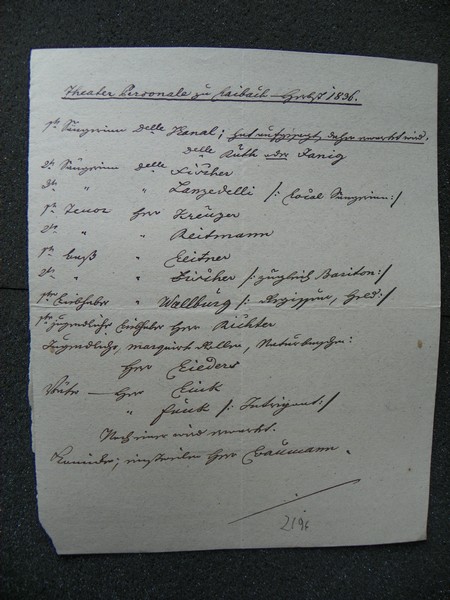 Theater Personale zu Laibach – Herbst 1836.
1te Sängerin Delle Kanal; hat aufgesagt, daher erwartet wird.
Delle Ruth oder Janig
2te Sängerin Delle Fischer
3te " " Lanzedelli /: Local Sängerin :/
1ter Tenor Herr Kreuzer
2ter " " Reitmann
1ter Baß " Leitner
2ter " " Fischer /: zugleich Bariton :/
1ter Liebhaber " Wallburg /: Regisseur, Held :/
1ter jugendliche Liebhaber Herr Richter
Jugendliche, marquirt Rollen, Naturbursche:
Herr
Väter — Herr
" Funk /: Intrigant :/
Noch einer wird erwartet.
Komiker; einstweilen Herr Baumann.
219